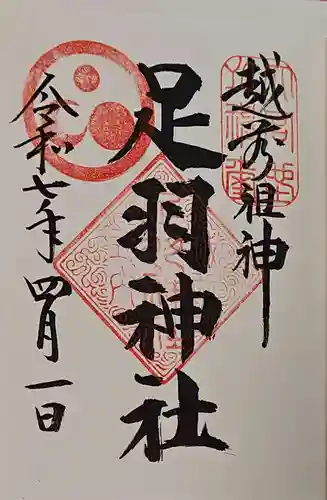 越前祖神
足羽神社
令和七年四月一日